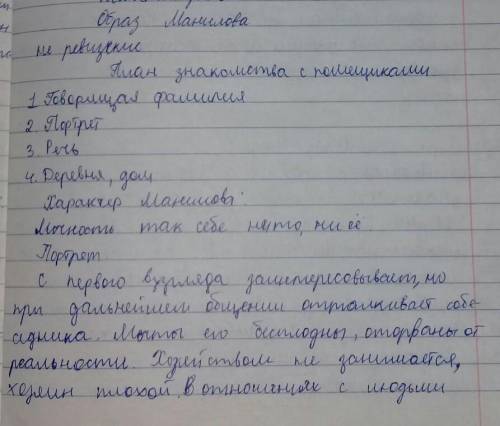 Образ Манилова
не ревизские
План знакомства с помещиками
1 Говорящая фамилия
2 Портрет
3. Речь
4. Деревня, дом
Характер Манилова:
Личность так себе ни то, ни сё
Портрет
С первого взгляда заинтересовывает, но
при дальнейшем общении отталкивает собе
седника. Мечты его бесплодны, оторваны от
реальности. Хозяйством не занимается,
хозяин плохой. В отношениях с людьми